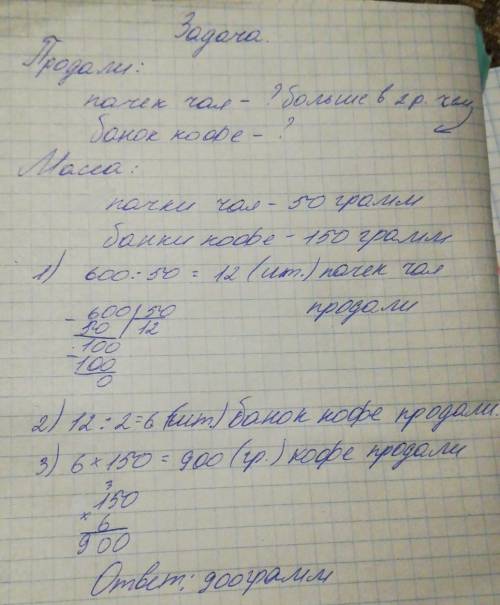 Задача.
Продали:
пачек чая - ? больше в 2 р. чем
банок кофе - ?
Масса:
пачки чая - 50 грамм
банки кофе - 150 грамм
1) 600 : 50 = 12 (шт.) пачек чая
продали
- 600 | 50
50 | 12
- 100
100
0
2) 12 : 2 = 6 (шт) банок кофе продали.
3) 6 × 150 = 900 (гр.) кофе продали
3
150
× 6
900
Ответ: 900 грамм